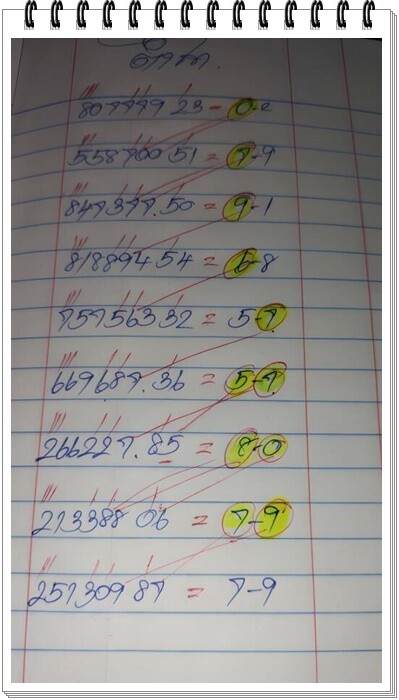 807779 23 - 0-2
558700 51 = 7-9
847377.50 = 9-1
818894 54 = 5-8
757563 32 = 5-7
669687.36 = 5-7
266227.85 = 8-0
213388 06 = 7-9
251309 87 = 7-9